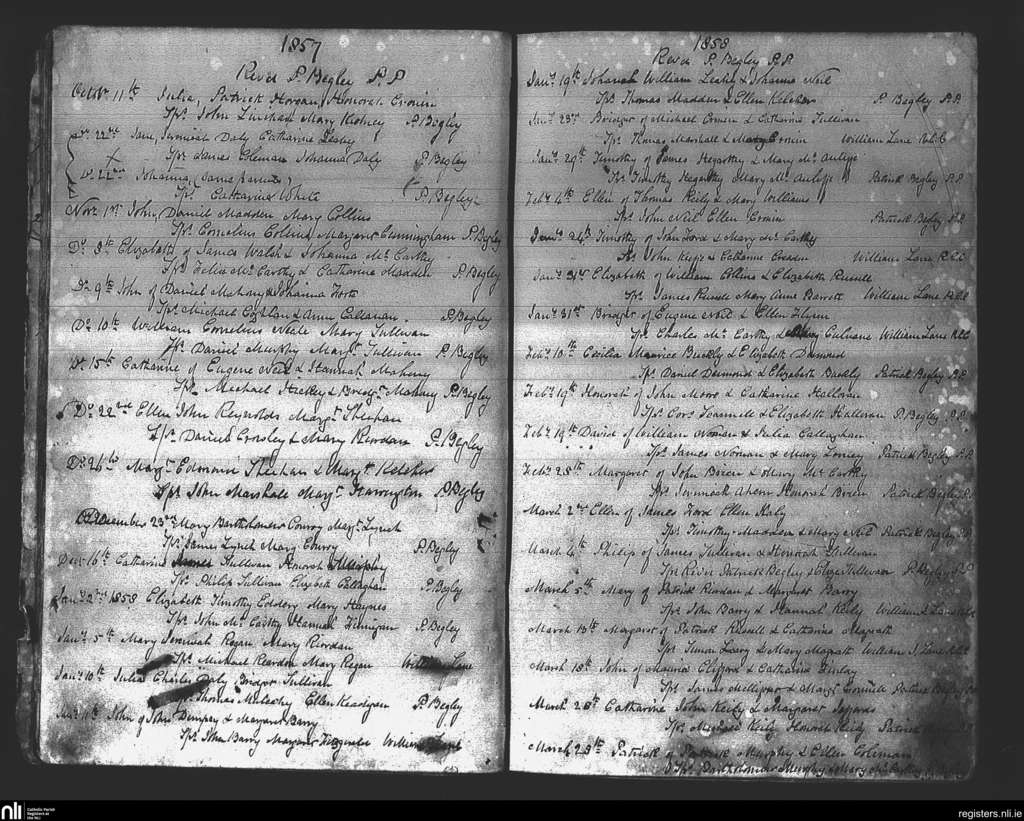 1857
Revd P. Begley P.P
Octobr 11th Julia, Patrick Horgan, Honorah Cronin
Sprs John Linehan Mary Kidney P. Begley
Do 22nd Jane, Jeremiah Daly Catharine Leahy
Sprs James Coleman Johanna Daly P. Begley
Do 22nd Johanna, (same parents)
Spr Catharine White P. Begley
Novr 1st John, Daniel Madden Mary Collins
Sprs Cornelius Collins Margaret Cunningham P. Begley
Do 8th Elizabeth of James Walsh & Johanna Mc Carthy
Sprs Felix Mc Carthy & Catharine Madden P. Begley
Do 9th John of Daniel Mahony & Johanna
Sprs Michael & Ann Callanan P. Begley
Do 10th William Cornelius Neale Mary Sullivan
Sprs Daniel Murphy Margt Sullivan P. Begley
Do 15th Catharine of Eugene Neil & Hannah Mahony
Sprs Michael Hickey & Bridgt Mahony P. Begley
Do 22nd Ellen John Reynolds Margt Sheehan
Sprs Daniel Crosley & Mary Riordan P. Begley
Do 26th Margt Edmond Sheehan & Margt Keleher
Sprs John Marshall Margt Harrington P. Begley
December 23rd Mary Bartholomew Conroy Margt Lynch
Sprs James Lynch Mary Conroy P. Begley
Decr 16th Catharine James Sullivan Honorah Murphy
Sprs Philip Sullivan Elizabeth Callaghan P. Begley
Jany 2nd 1858 Elizabeth Timothy Mary Haynes
Sprs John Mc Carthy Hannah Finnigan P. Begley
Jany 5th Mary Jeremiah Regan Mary Riordan
Sprs Michael Reardon Mary Regan William Lane
Jany 10th Julia Charles Daly Bridget Sullivan
Sprs Thomas Mulcahy Ellen P. Begley
John of John Dempsey & Margaret Barry
Sprs John Barry Margaret Fitzgerald William Lane
1858
Revd P. Begley P.P.
Jany 19th Johanah William Leahy & Johanna Neil
Sprs Thomas Madden & Ellen Keleher P. Begley P.P.
Jany 23rd Bridget of Michael Cronin & Catharine Sullivan
Sprs Thomas Marshall & Mary Cronin William Lane R.C.C
Jany 29th Timothy of James Hegarthy & Mary Mc Auliffe
Sprs Timothy Hegarthy Mary Mc Auliffe Patrick Begley P.P
Feby 4th Ellen of Thomas Keily & Mary Williams
Sprs John Neil Ellen Cronin Patrick Begley P.P.
Jany 24th Timothy of John Ford & Mary Mc Carthy
Sprs John Keeffe & Catharine William Lane R.C.C
Jany 31st Elizabeth of William Collins & Elizabeth Russell
Sprs James Russell Mary Anne Barrett William Lane R.C.C.
Jany 31st Bridget of Eugene Neil & Ellen Flynn
Sprs Charles Mc Carthy & Mary Culnane William Lane R.C.C
Feby 10th Cecilia Maurice Buckly & Elizabeth Desmond
Sprs Daniel Desmond & Elizabeth Buckly Patrick Begley P.P.
Feby 19th Honorah of John Moore & Catharine Halloran
Sprs Cors & Elizabeth Halloran P. Begley P.P.
Feby 19th David of William Noonan & Julia Callaghan
Sprs James Noonan & Mary Looney Patrick Begley P.P
Feby 28th Margaret of John Brien & Mary Mc Carthy
Sprs Ahern Honorah Brien Patrick Begley P.P
March 2nd Ellen of James Ford Ellen Kiely
Sprs Timothy Madden & Mary Neil Patrick Begley P.P
March 4th Philip of James Sullivan & Honorah Sullivan
Sprs Revd Patrick Begley & Eliza Sullivan P. Begley P.P
March 5th Mary of Patrick Riordan & Margaret Barry
Sprs John Barry & Hannah Keily William Lane
March 13th Margaret of Patrick Russell & Catharine Magrath
Sprs Simon Leary & Mary Magrath William Lane
March 18th John of Maurice Clifford & Catharine Finlay
Sprs James & Margt Patrick Begley
March 28th Catharine John Keily & Margaret
Sprs Michael Keily Honorah Keily Patrick
March 28th Patrick of Patrick Murphy & Ellen Coleman
Sprs Bartholomew Murphy & Mary Mc Carthy
nli
Catholic Parish
Registers at
the NLI
registers.nli.ie